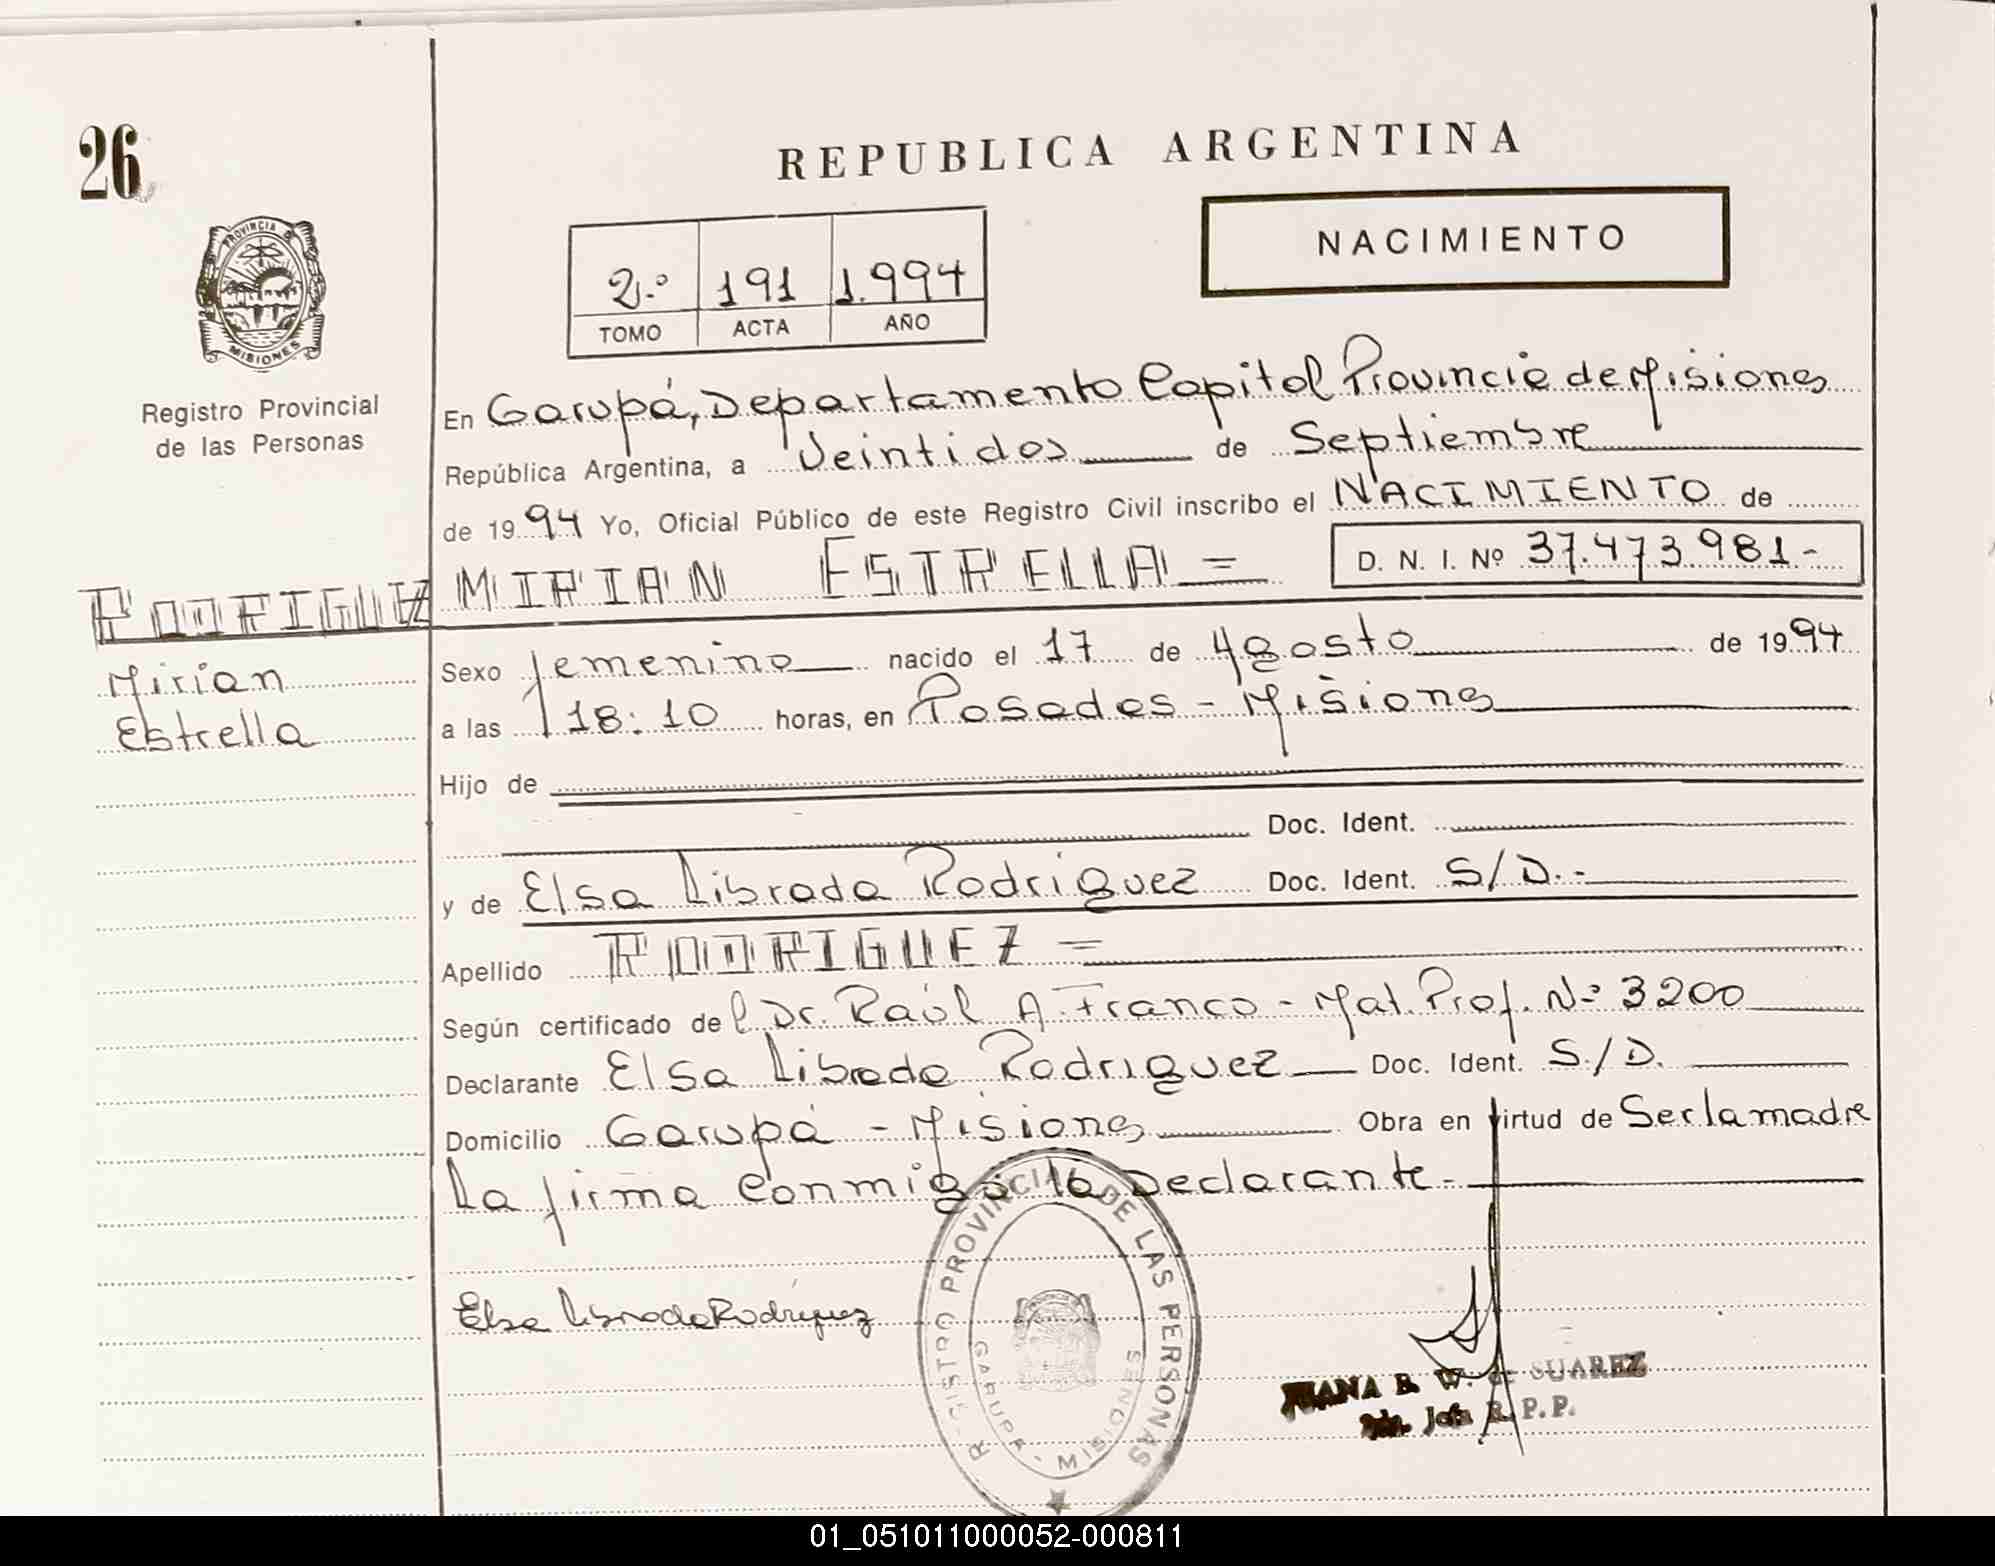 26
REPUBLICA ARGENTINA
NACIMIENTO
2.º 191 1.994
TOMO ACTA AÑO
PROVINCIA DE
MISIONES
Registro Provincial
de las Personas
En Garupá, Departamento Capital Provincia de Misiones
República Argentina, a Veintidos de Septiembre
de 1994 Yo, Oficial Público de este Registro Civil inscribo el NACIMIENTO de
MIRIAN ESTRELLA = D. N. I. Nº 37.473.981-
RODRIGUEZ
Mirian
Estrella
Sexo femenino nacido el 17 de Agosto de 1994
a las 18:10 horas, en Posadas - Misiones
Hijo de
Doc. Ident.
y de Elsa Librada Rodriguez Doc. Ident. S/D.-
Apellido RODRIGUEZ =
Según certificado del Dr. Raúl A. Franco - Mat. Prof. Nº 3200
Declarante Elsa Librada Rodriguez Doc. Ident. S./D.
Domicilio Garupá - Misiones Obra en virtud de Ser la madre
La firma conmigo la Declarante.-
Elsa Librada Rodriguez
REGISTRO PROVINCIAL DE LAS PERSONAS
GARUPA - MISIONES
JUANA B. W. de SUAREZ
Jefa R.P.P.
01_051011000052-000811